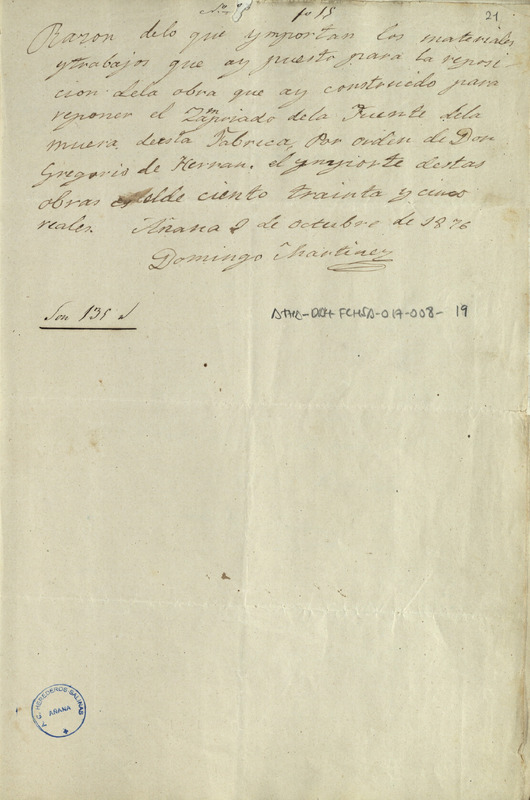 21
fo 15
Razon delo que ymportan los materiales
ytrabajos que ay puesto para la reposi
cion dela obra que ay construido para
reponer el Zampeado dela Fuente dela
muera desta Fabrica, Por orden de Don
Gregorio de Herran. el ymporte destas
obras es elde ciento trainta y cinco
reales. Añana 9 de octubre de 1876
Domingo Martinez
Son 135 r
ATHA-DAH-FCHSA-017-008-19
HEREDEROS SALINAS
AÑANA